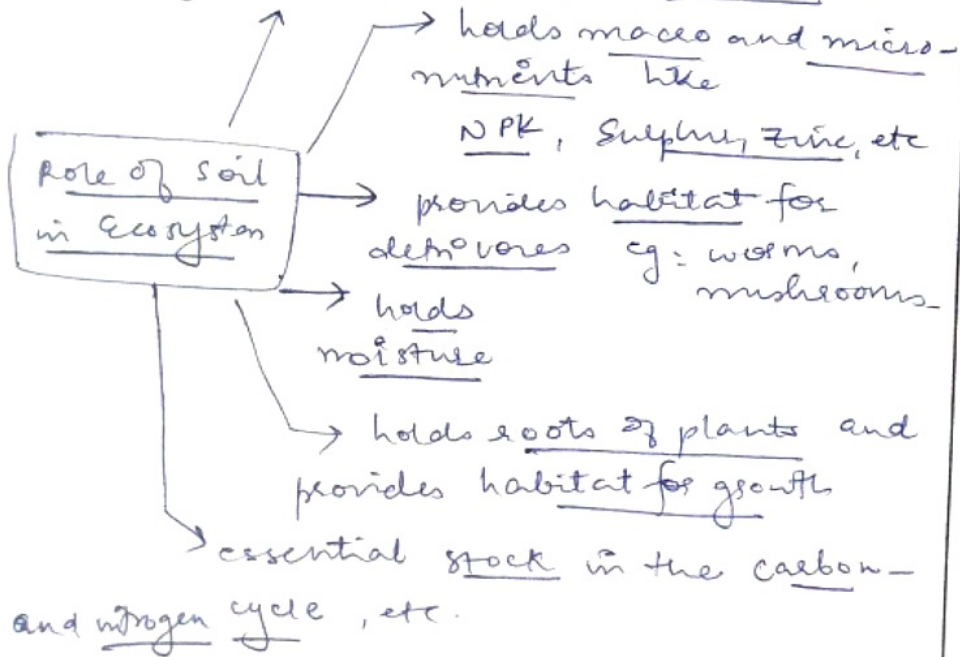 holds macro and micro-
nutrients like
NPK, Sulphur, Zinc, etc
Role of Soil
in Ecosystem
provides habitat for
detrivores eg: worms,
mushrooms
holds
moisture
holds roots of plants and
provides habitat for growth
essential stock in the carbon-
and nitrogen cycle, etc.